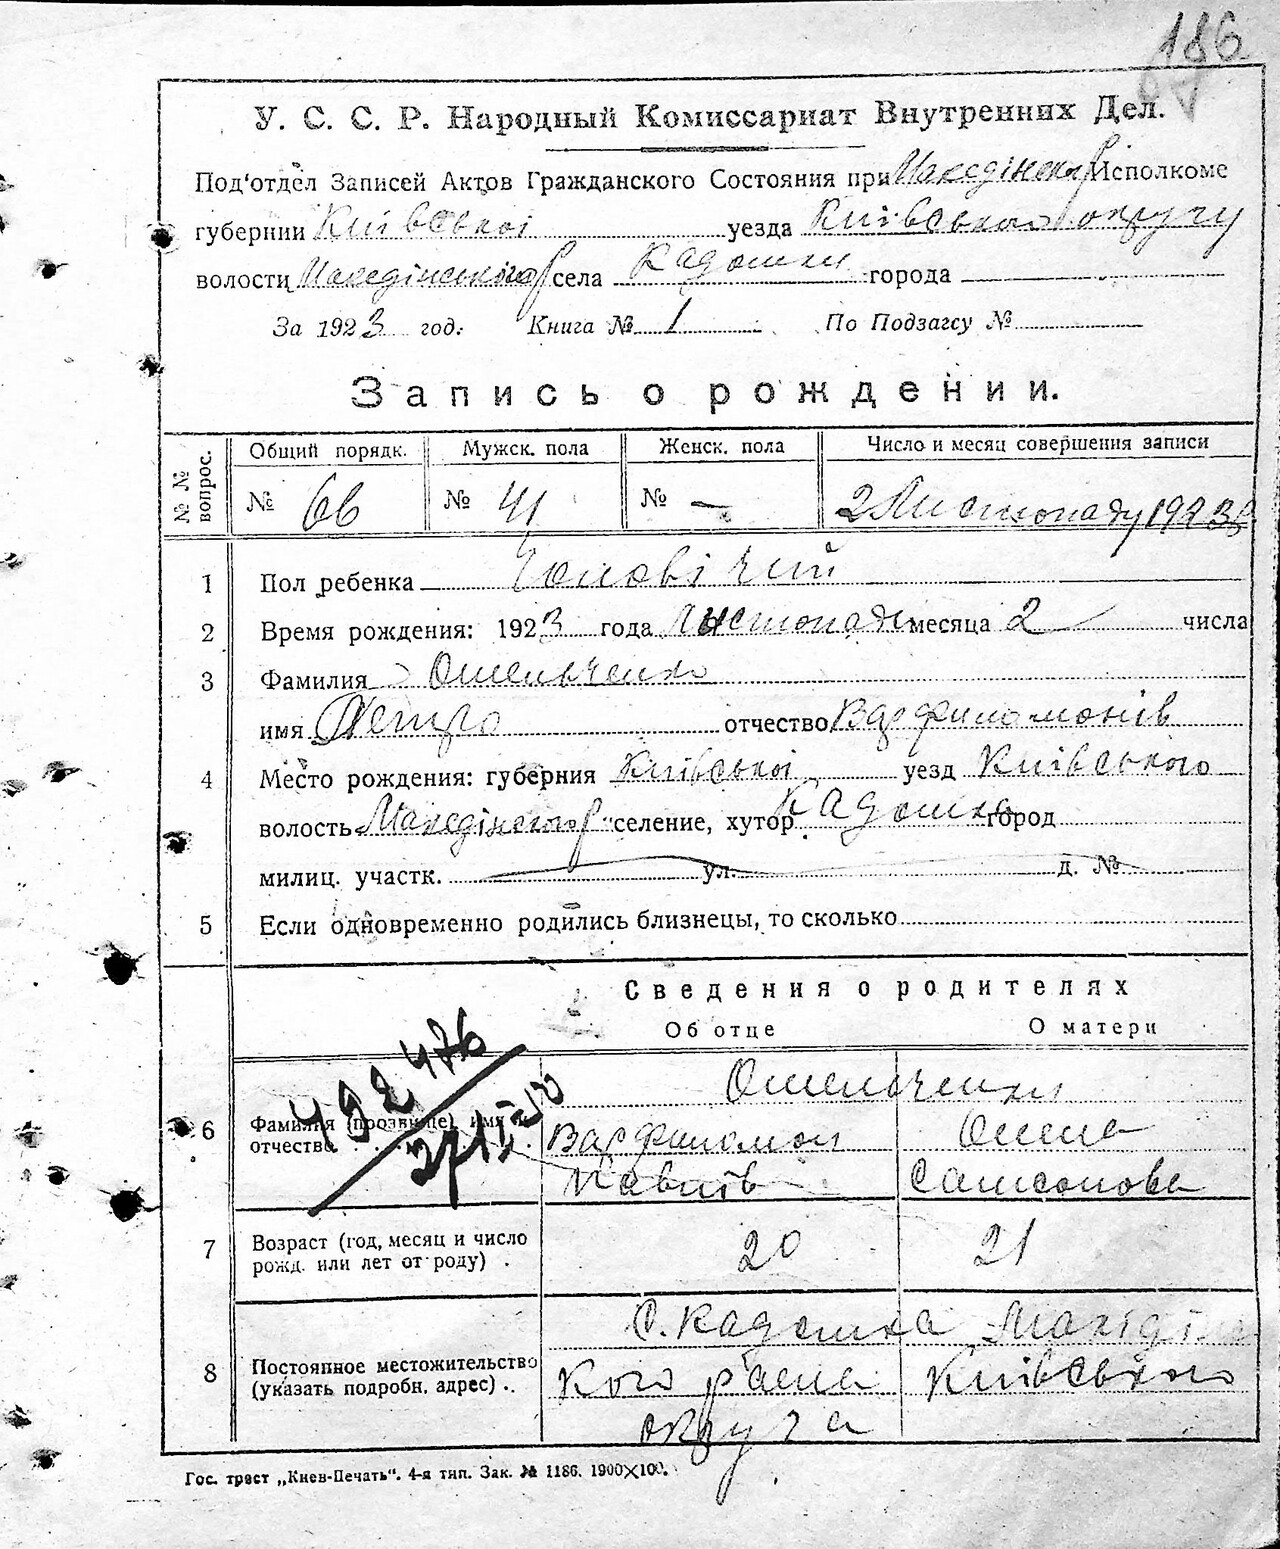 186
У. С. С. Р. Народный Комиссариат Внутренних Дел.
Под'отдел Записей Актов Гражданского Состояния при Исполкоме
губернии Київської уезда Київського округу
волости села Кадомки города
За 1923 год. Книга № 1 По Подзагсу №
Запись о рождении.
№ № вопрос. Общий порядк. Мужск. пола Женск. пола Число и месяц совершения записи
№ 66 № 41 № — 2 Листопаду 1923 р
1 Пол ребенка Чоловічий
2 Время рождения: 1923 года Листопада месяца 2 числа
3 Фамилия Омельченко
имя Петро отчество Варфиломонів
4 Место рождения: губерния Київської уезд Київського
волость селение, хутор Кадомка город
милиц. участк. ул. д. №
5 Если одновременно родились близнецы, то сколько
Сведения о родителях
Об отце О матери
Омельченки
6 Фамилия (прозвище), имя и отчество Варфиломон Олена
Павлів Самсонова
492476
7 Возраст (год, месяц и число рожд. или лет от роду) . 20 21
С. Кадомка
8 Постоянное местожительство (указать подробн. адрес) . . кого раена Київського
округа
Гос. трест „Киев-Печать". 4-я тип. Зак. № 1186. 1900×100.